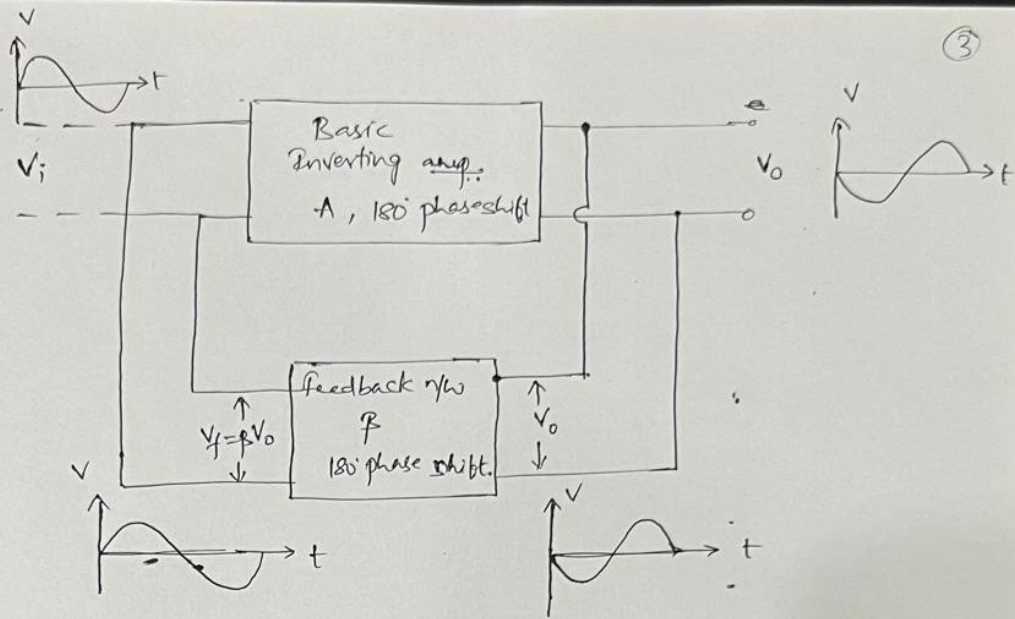 ③
V
t
Vi
Basic
Inverting amp.
A, 180° phase shift
Vo
V
t
feedback n/w
β
180° phase shift.
Vf = βVo
Vo
V
t
V
t